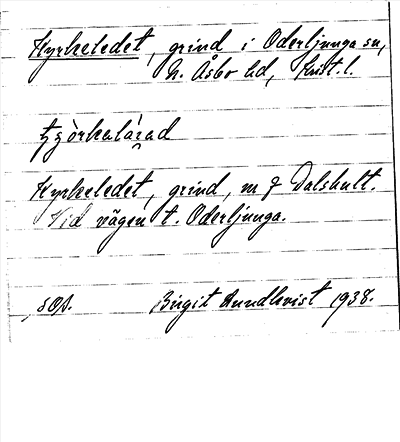 Kyrkeledet, grind i Oderljunga sn,
N. Åsbo hd, Krist. l.
Kyrkeledet, grind, m f Dalshult.
Vid vägen t. Oderljunga.
Birgit Rundkvist 1938.